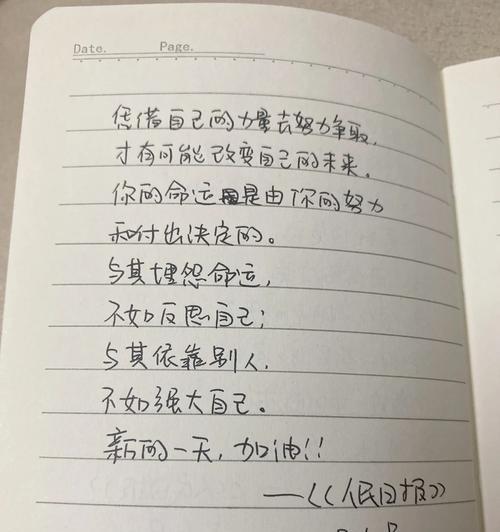 Date. Page.
凭借自己的力量去努力争取,
才有可能改变自己的未来。
你的命运是由你的努力
和付出决定的。
与其埋怨命运,
不如反思自己;
与其依靠别人,
不如强大自己。
新的一天,加油!!
——《人民日报》